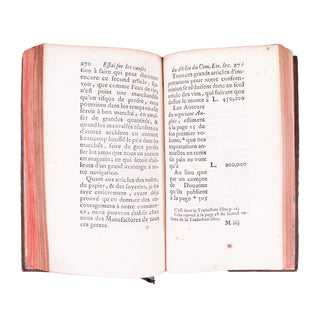 270 Essai sur les causes
tion à faire qui peut diminuer
encore ce second article, sça-
voir, que comme l'eau de vie,
n'est point une marchandise
qu'on risque de perdre, nous
pourrions dans les temps où elle
seroit à bon marché, en amas-
ser de grandes quantités, &
quand les mauvaises récoltes ou
d'autres accidens en auroient
beaucoup haussé le prix dans les
marchés, faire de gros profits
en mettant en vente nos eaux en
magazin, ce qui seroit d'ail-
leurs d'un grand avantage à no-
tre navigation.
Quant aux articles des toiles,
du papier, & des soyeries, je les
raye entierement, ayant déjà
prouvé qu'en donnant des en-
couragemens à notre commer-
ce, nous pouvons établir chez
nous des Manufactures de tous
ces genres.
du déclin du Com. Etr. &c. 271
Tous ces grands articles d'im-
portations pour notre consom-
mation, se réduiront donc au seul
article des vins, qui suivant que
dessus se monte à L. 450,000
Les Auteurs
du Négociant An-
glois, estiment
à la page 15 de
son premier vo-
lume, * que nos
exportations an-
nuelles en tems
de paix ne vont
qu'à L. 200,000
Au lieu que
par un compte
de Douanne
qu'ils publient
à la page * 305
C'est dans la Traduction libre p. 12.
Cela répond à la page 58 du second vo-
lume de la Traduction libre.
M iij